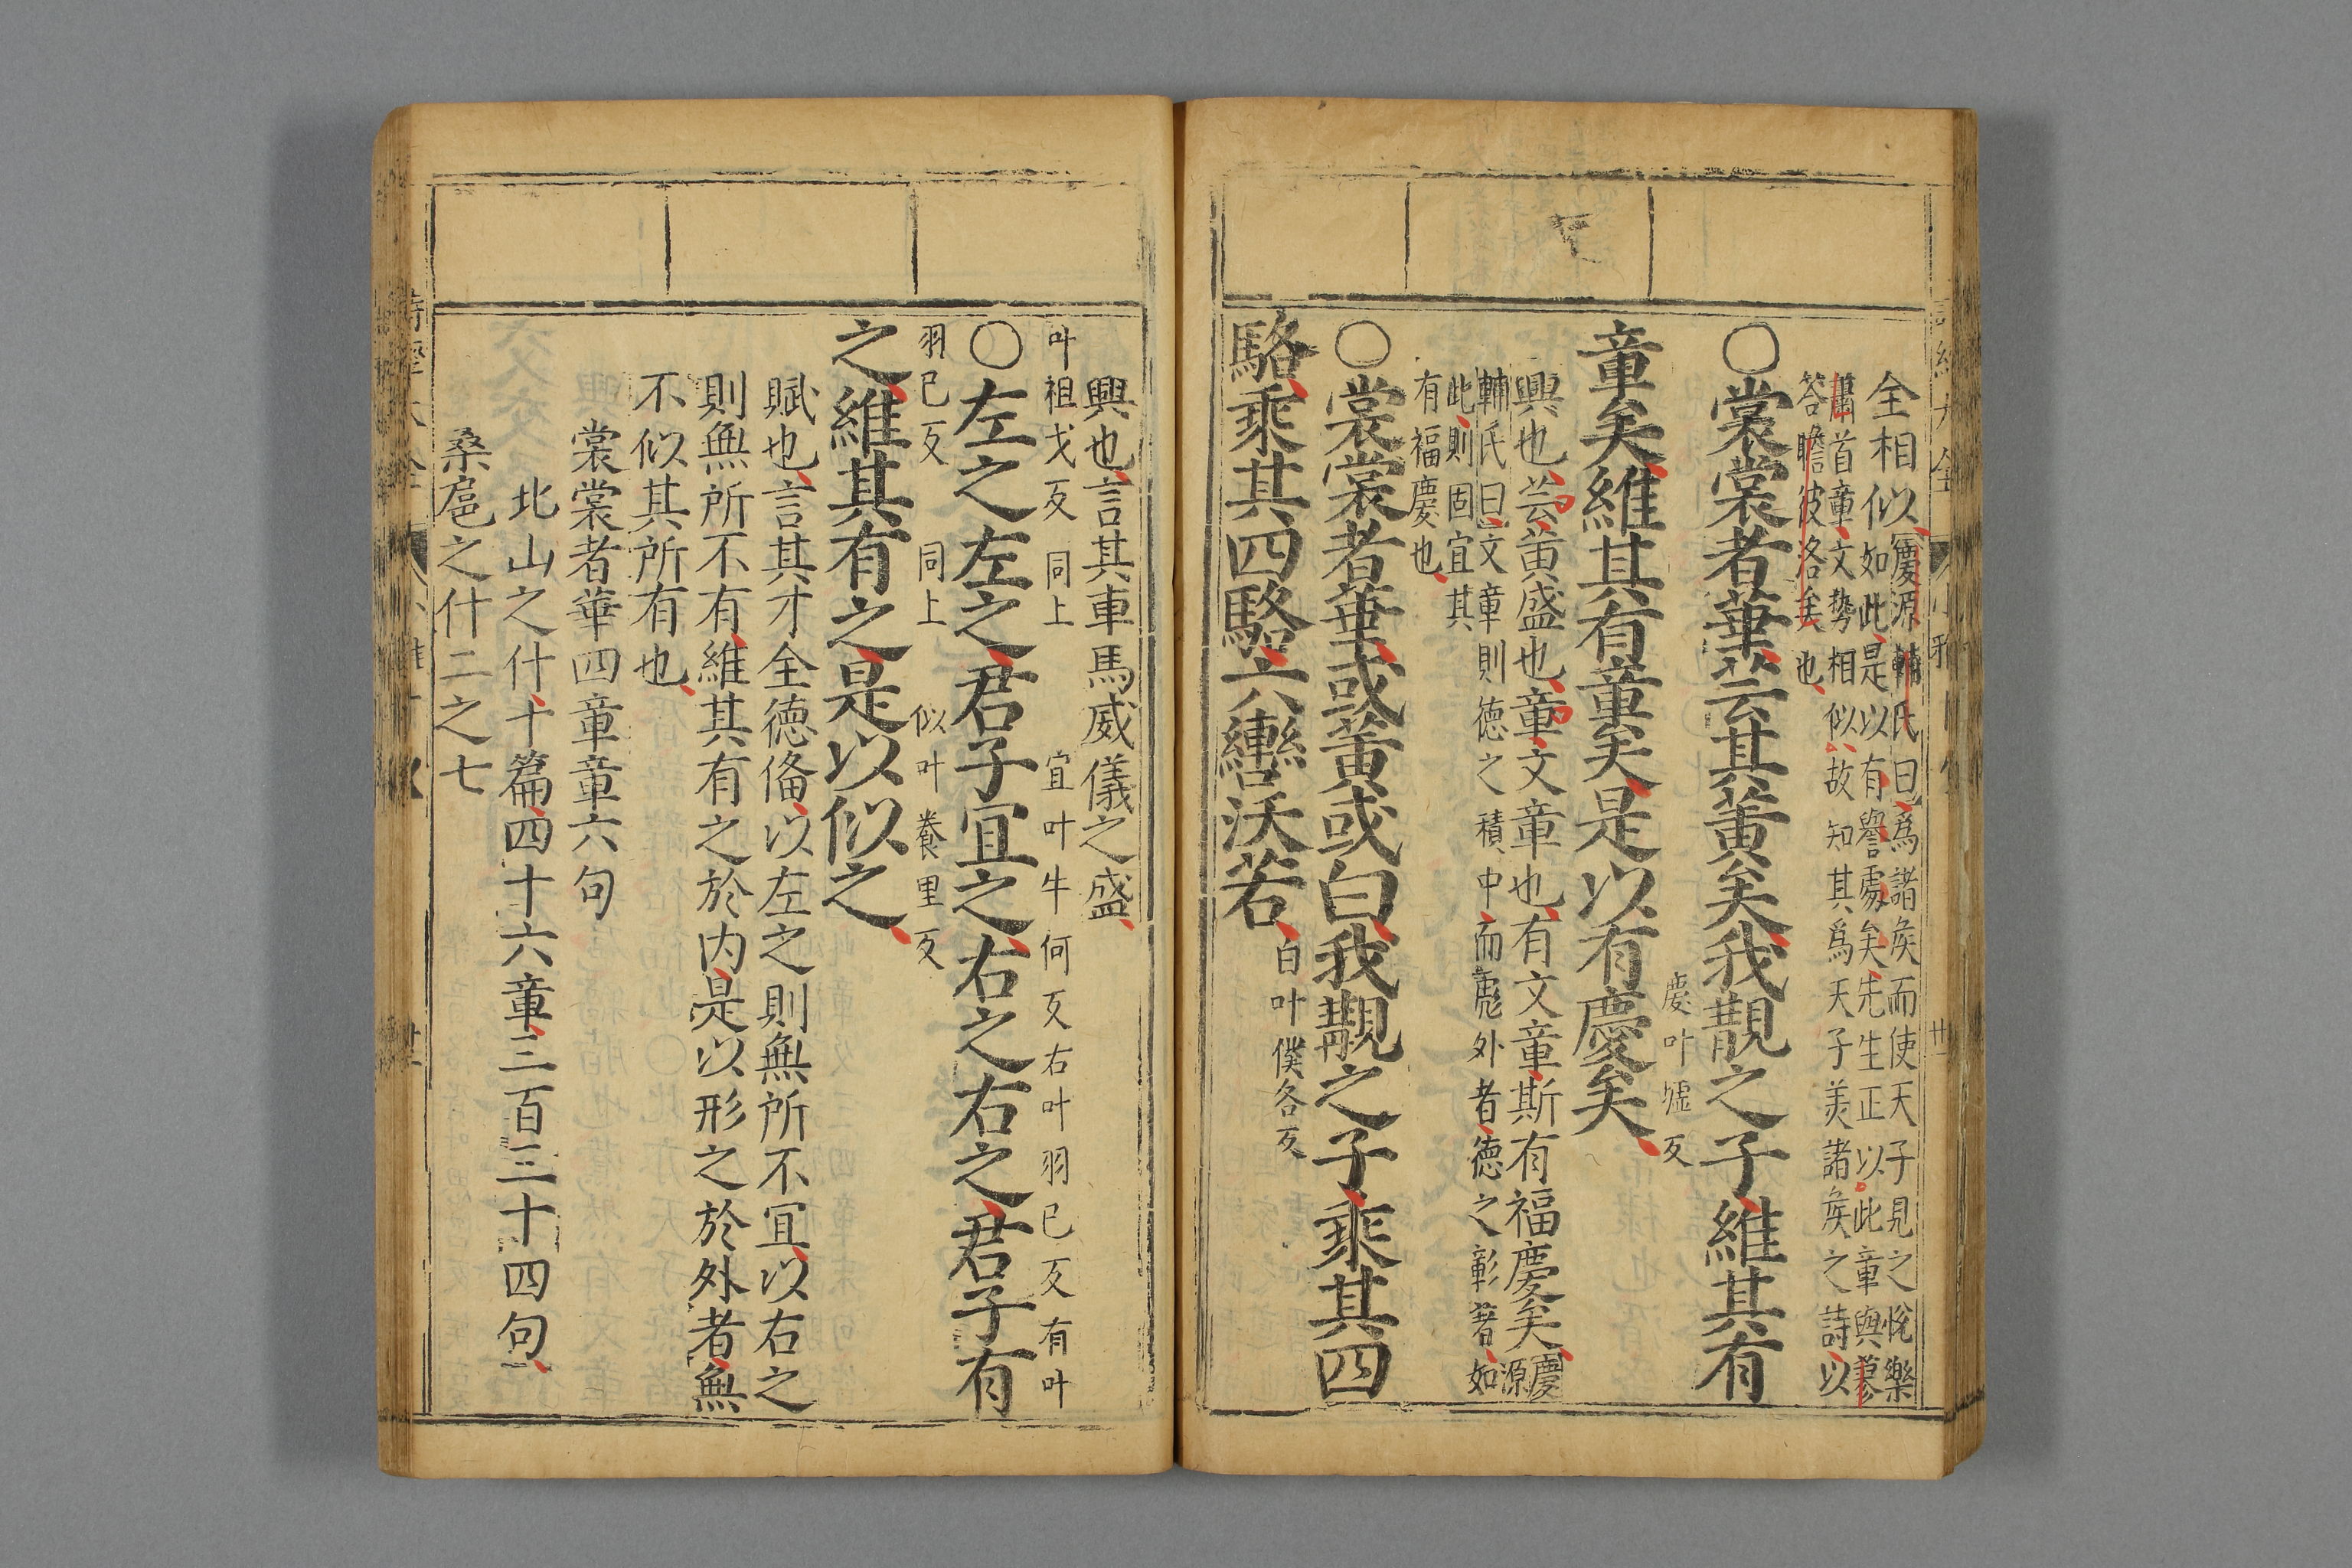 全相似慶源輔氏曰爲諸矦而使天子見之恱樂
如此是以有譽處矣先生正以此章與蓼
蕭首章文勢相似故知其爲天子美諸矦之詩以
答瞻彼洛矣也
○裳裳者華芸其黄矣我覯之子維其有
慶叶墟反
章矣維其有章矣是以有慶矣
興也芸黄盛也章文章也有文章斯有福慶矣慶源
輔氏曰文章則徳之積中而彪外者徳之彰著如
此則固宜其
有福慶也
○裳裳者華或黄或白我覯之子乘其四
白叶僕各反
駱乘其四駱六轡沃若
興也言其車馬威儀之盛
叶祖戈反 同上 宜叶牛何反右叶羽已反有叶
○左之左之君子宜之右之右之君子有
羽已反 同上 似叶養里反
之維其有之是以似之
賦也言其才全徳俻以左之則無所不宜以右之
則無所不有維其有之於内是以形之於外者無
不似其所有也
裳裳者華四章章六句
北山之什十篇四十六章三百三十四句
桑扈之什二之七